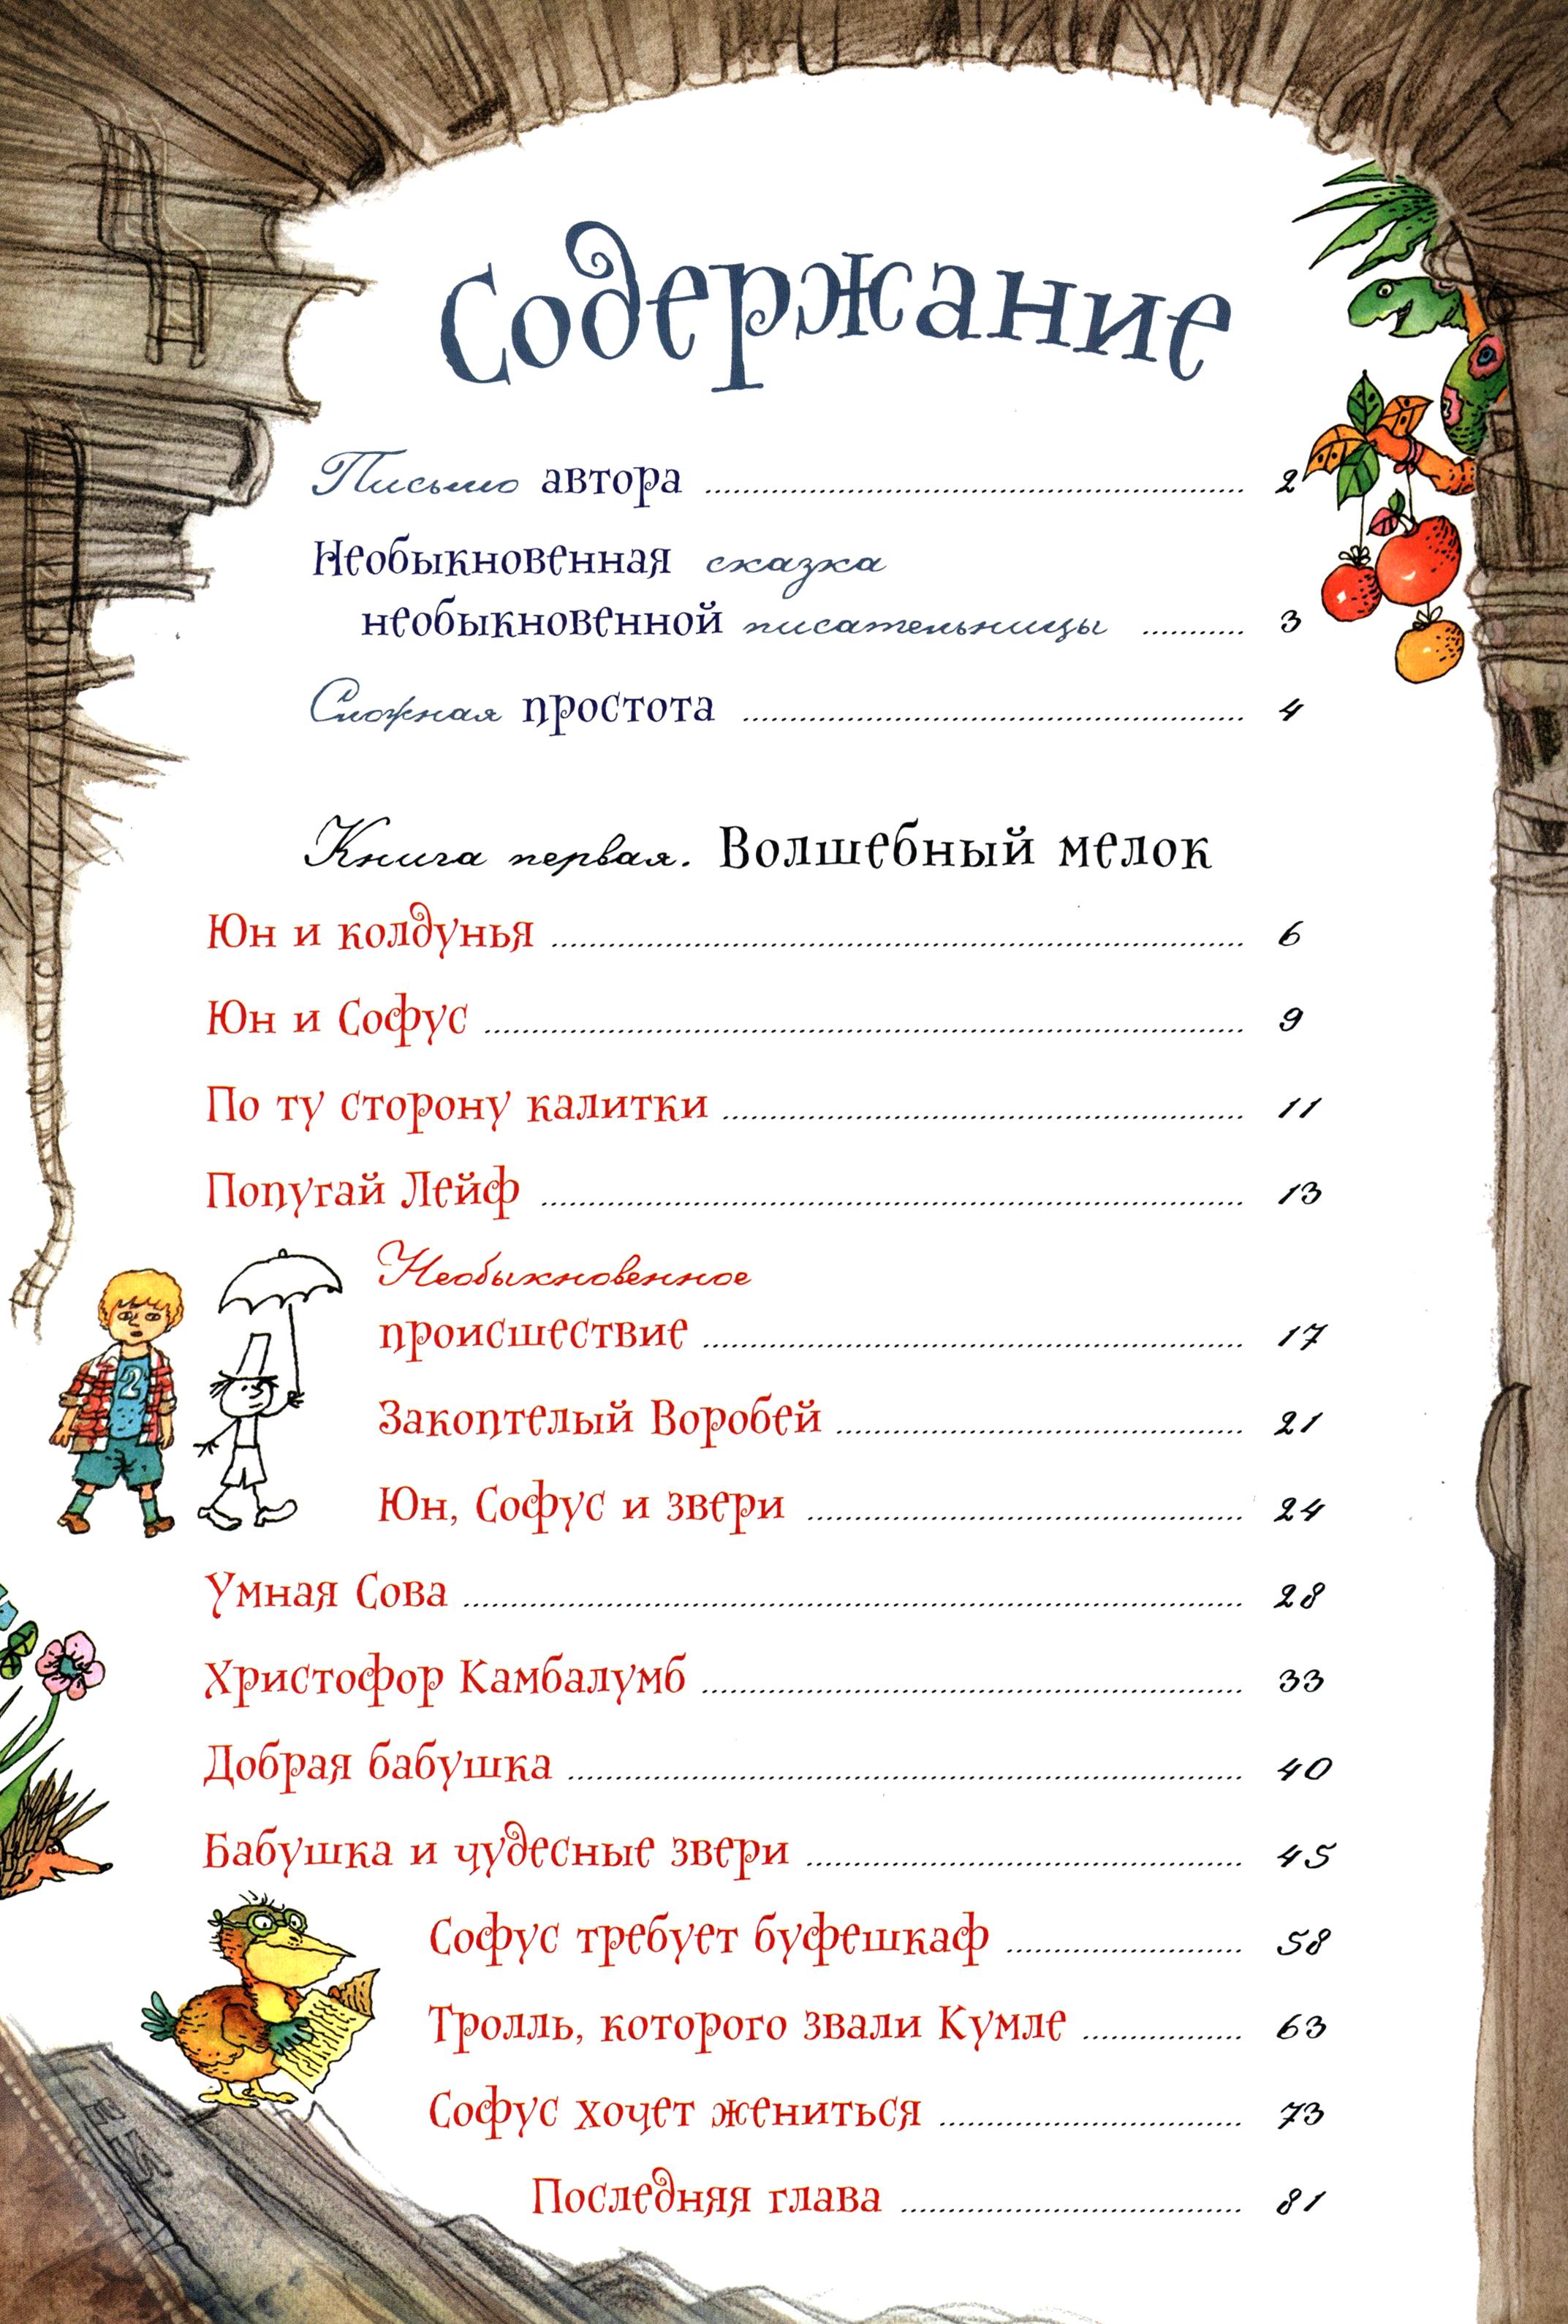 Содержание
Письмо автора 2
Необыкновенная сказка
необыкновенной писательницы 3
Сложная простота 4
Книга первая. Волшебный мелок
Юн и колдунья 6
Юн и Софус 9
По ту сторону калитки 11
Попугай Лейф 13
Необыкновенное
происшествие 17
Закоптелый Воробей 21
Юн, Софус и звери 24
Умная Сова 28
Христофор Камбалумб 33
Добрая бабушка 40
Бабушка и чудесные звери 45
Софус требует буфешкаф 58
Тролль, которого звали Кумле 63
Софус хочет жениться 73
Последняя глава 81
2